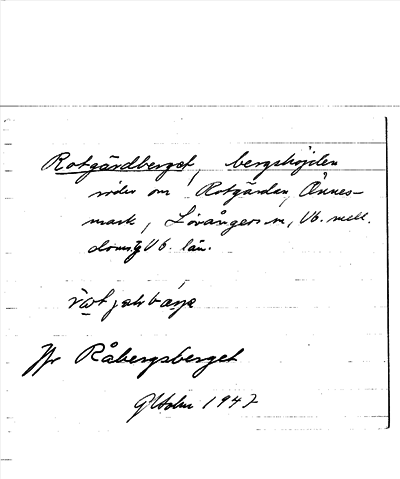 Rotgärdberget, bergshöjden
söder om Rotgärdan, Önnes-
mark, Lövångers sn, Vb. mell.
doms. Vb. län.
Jfr Råbergsberget
G Holm 1947